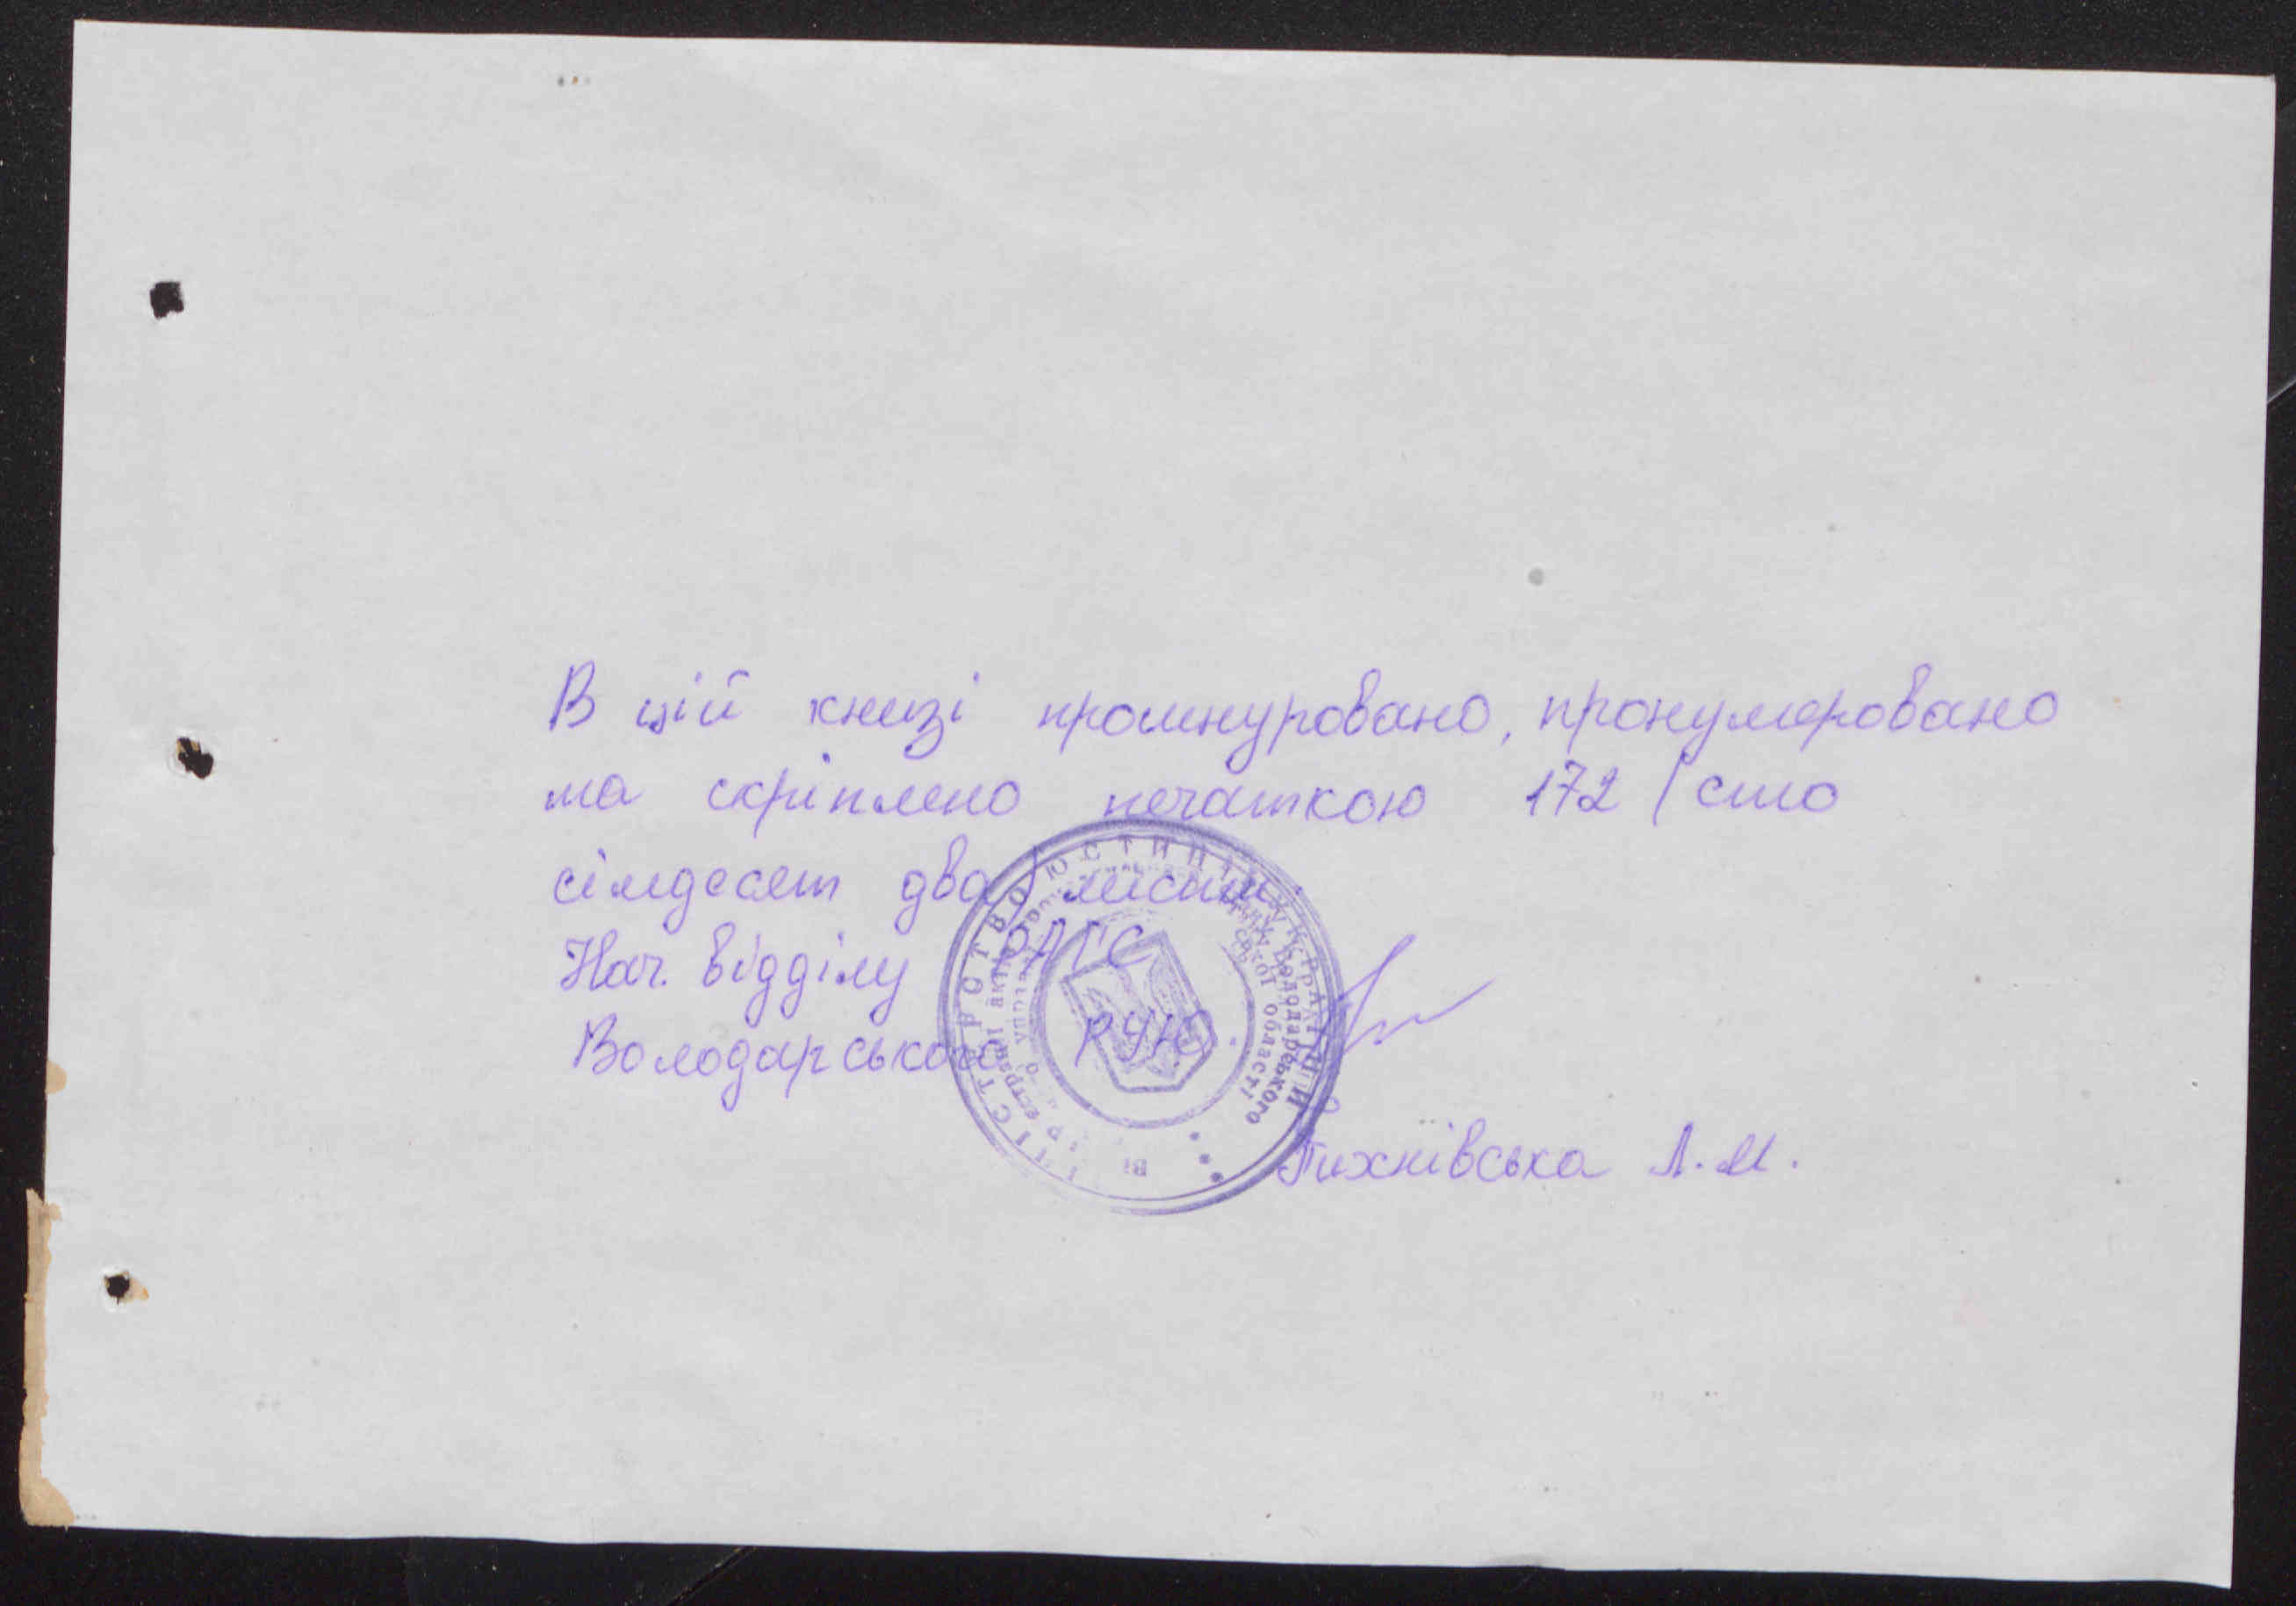 В цій книзі прошнуровано, пронумеровано
та скріплено печаткою 172 (сто
сімдесят два) листи.
Нач. відділу РАГС
Володарського РУЮ
Тихнівська Л.М.
МІНІСТЕРСТВО ЮСТИЦІЇ УКРАЇНИ
Володарського
області